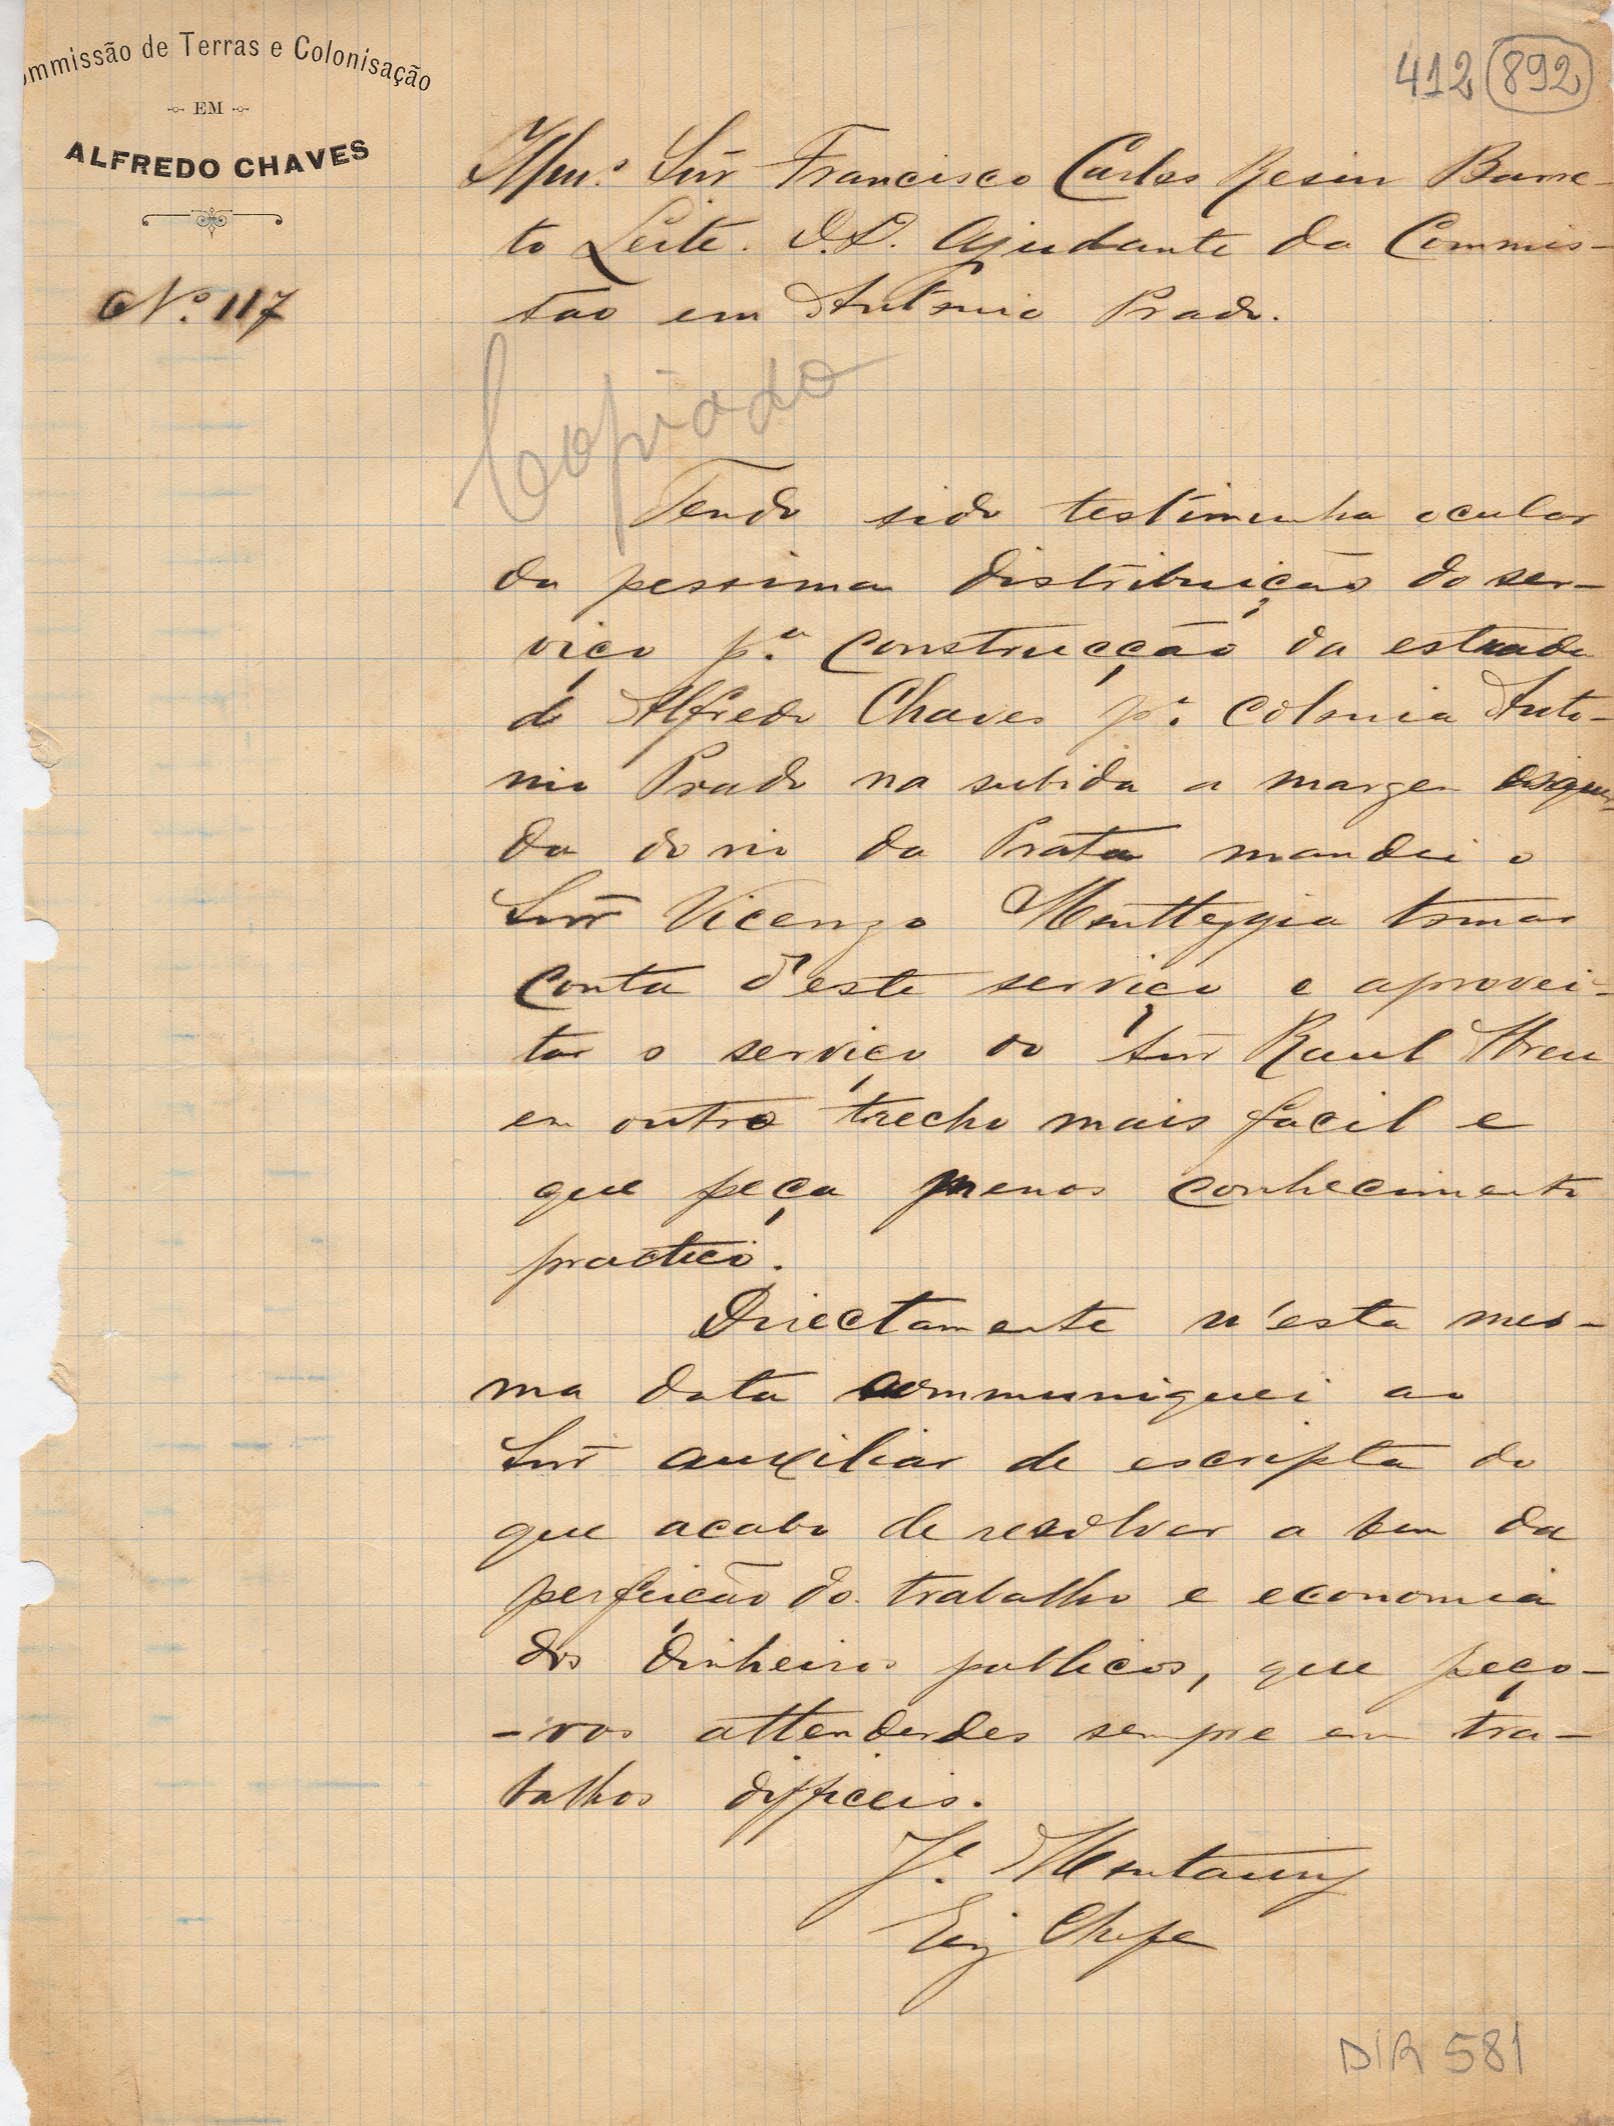 ommissão de Terras e Colonisação
EM
ALFREDO CHAVES
412 892
Nº. 117
Illmº. Snr Francisco Carlos Resin Barre-
to Leite. D.D. Ajudante da Commis-
são em Antonio Prado.
Copiado
Tendo sido testimunha ocular
da pessima distribuição do ser-
viço pª. construcção da estrada
de Alfredo Chaves pª. colonia Anto-
nio Prado na subida a margem esquer
da do rio da Prata mandei o
Snr Vicenzo Monteggia tomar
conta d'este serviço e aprovei-
tar o serviço do Snr Raul Abreu
em outro trecho mais facil e
que peça menos conhecimento
practico.
Directamente n'esta mes-
ma data communiquei ao
Snr auxiliar de escripta do
que acabo de resolver a bem da
perfeição do trabalho e economia
dos dinheiros publicos, que peço-
-vos attenderdes sempre em tra-
balhos difficeis.
Jº. Montaury
Eng Chefe
DIR 581